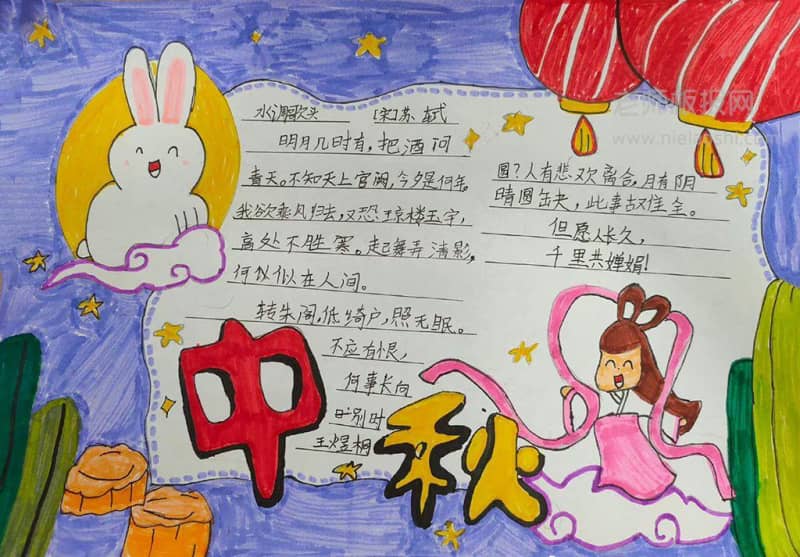 水调歌头 [宋]苏轼
明月几时有,把酒问
青天。不知天上宫阙,今夕是何年。
我欲乘风归去,又恐琼楼玉宇,
高处不胜寒。起舞弄清影,
何似似在人间。
转朱阁,低绮户,照无眠。
不应有恨,
何事长向
时别时
王煜桐
圆?人有悲欢离合,月有阴
晴圆缺,此事故难全。
但愿人长久,
千里共婵娟!
中秋
老师板报网